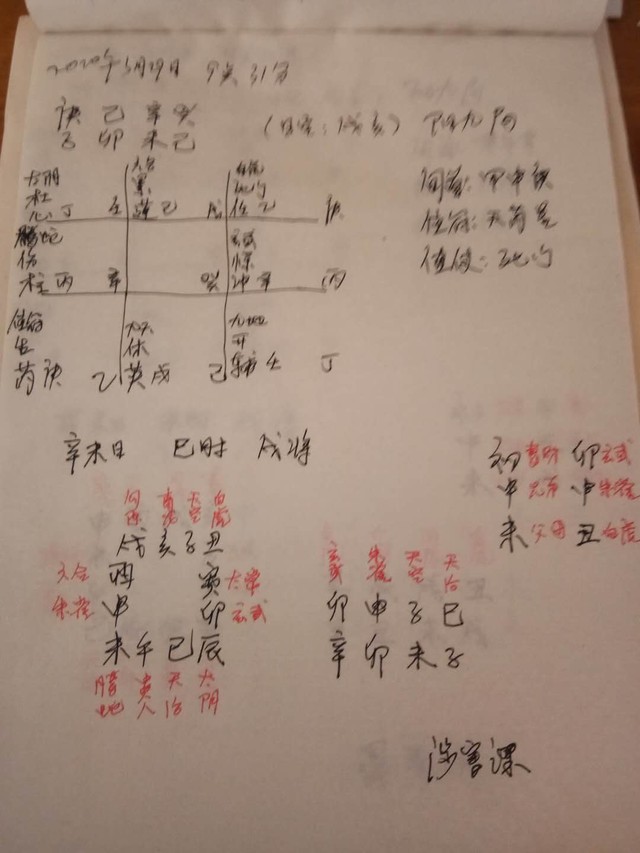 2020年5月19日 9点31分
庚 己 辛 癸
子 卯 未 己
(日空:戌亥) 阴九局
太阴
杜
丁 壬 己 戊 任 乙 庚
旬首:甲申庚
值符:天芮星
值使:死门
螣蛇 玄武
伤 惊
柱 丙 辛 癸 冲 辛 丙
值符 九天 九地
生 休 开
芮 庚 乙 英 戊 己 辅 壬 丁
辛未日 巳时 戌将
初 妻财 卯 玄武
中 兄弟 申 朱雀
末 父母 丑 白虎
勾陈 青龙 天空 白虎
戌 亥 子 丑
六合 酉 寅 太常
朱雀 申 卯 玄武
未 午 巳 辰
螣蛇 贵人 天后 太阴
玄武 朱雀 天空 天后
卯 申 子 巳
辛 卯 未 子
涉害课